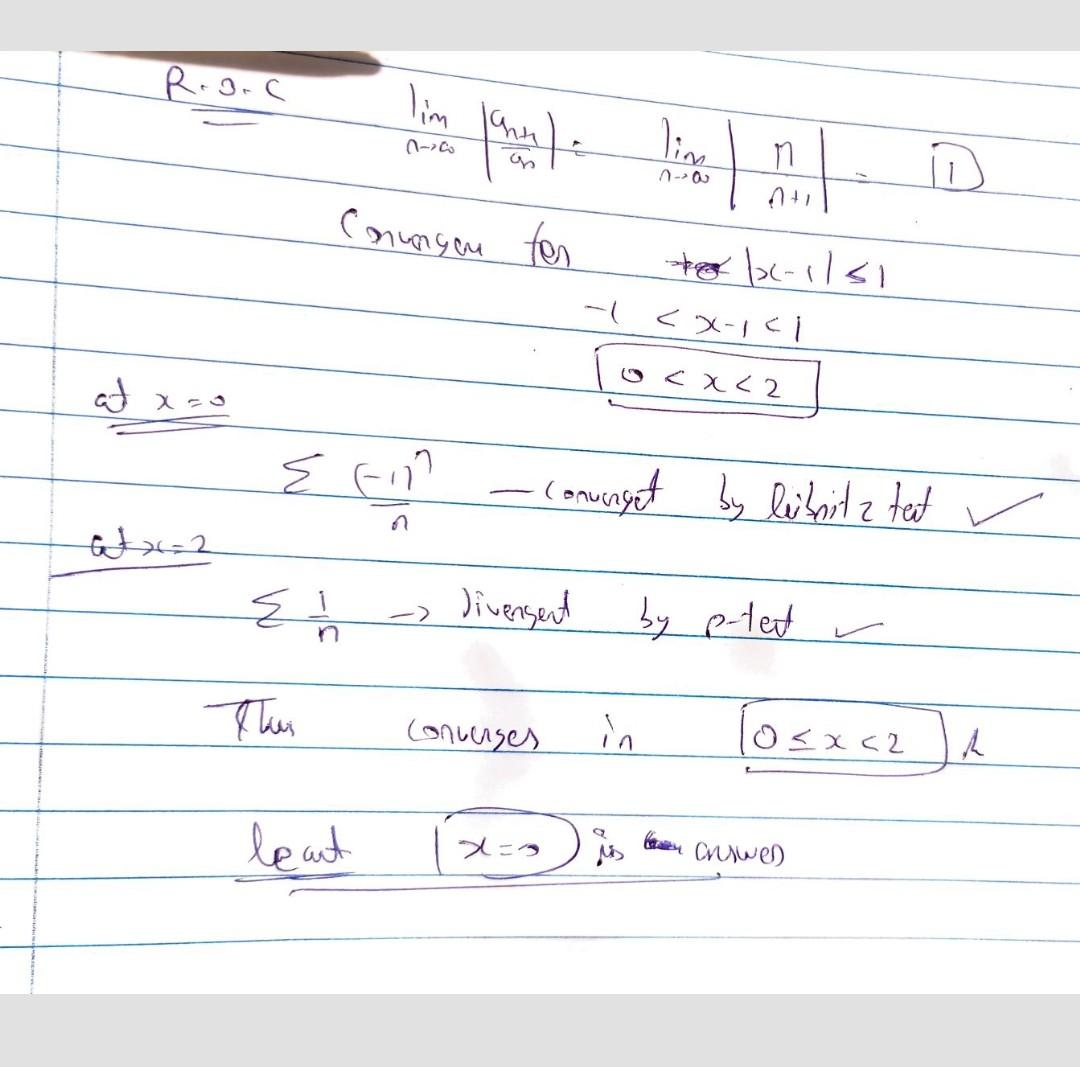 R.O.C lim n→∞ |aₙ₊₁/aₙ| = lim n→∞ |n/n+1| = 1
Convergen for |x-1| ≤ 1
-1 < x-1 < 1
0 < x < 2
at x=0
Σ (-1)ⁿ/n — converget by leibnitz test ✓
at x=2
Σ 1/n → Divergent by p-test ✓
Thus converges in 0 ≤ x < 2
least x=0 is answer